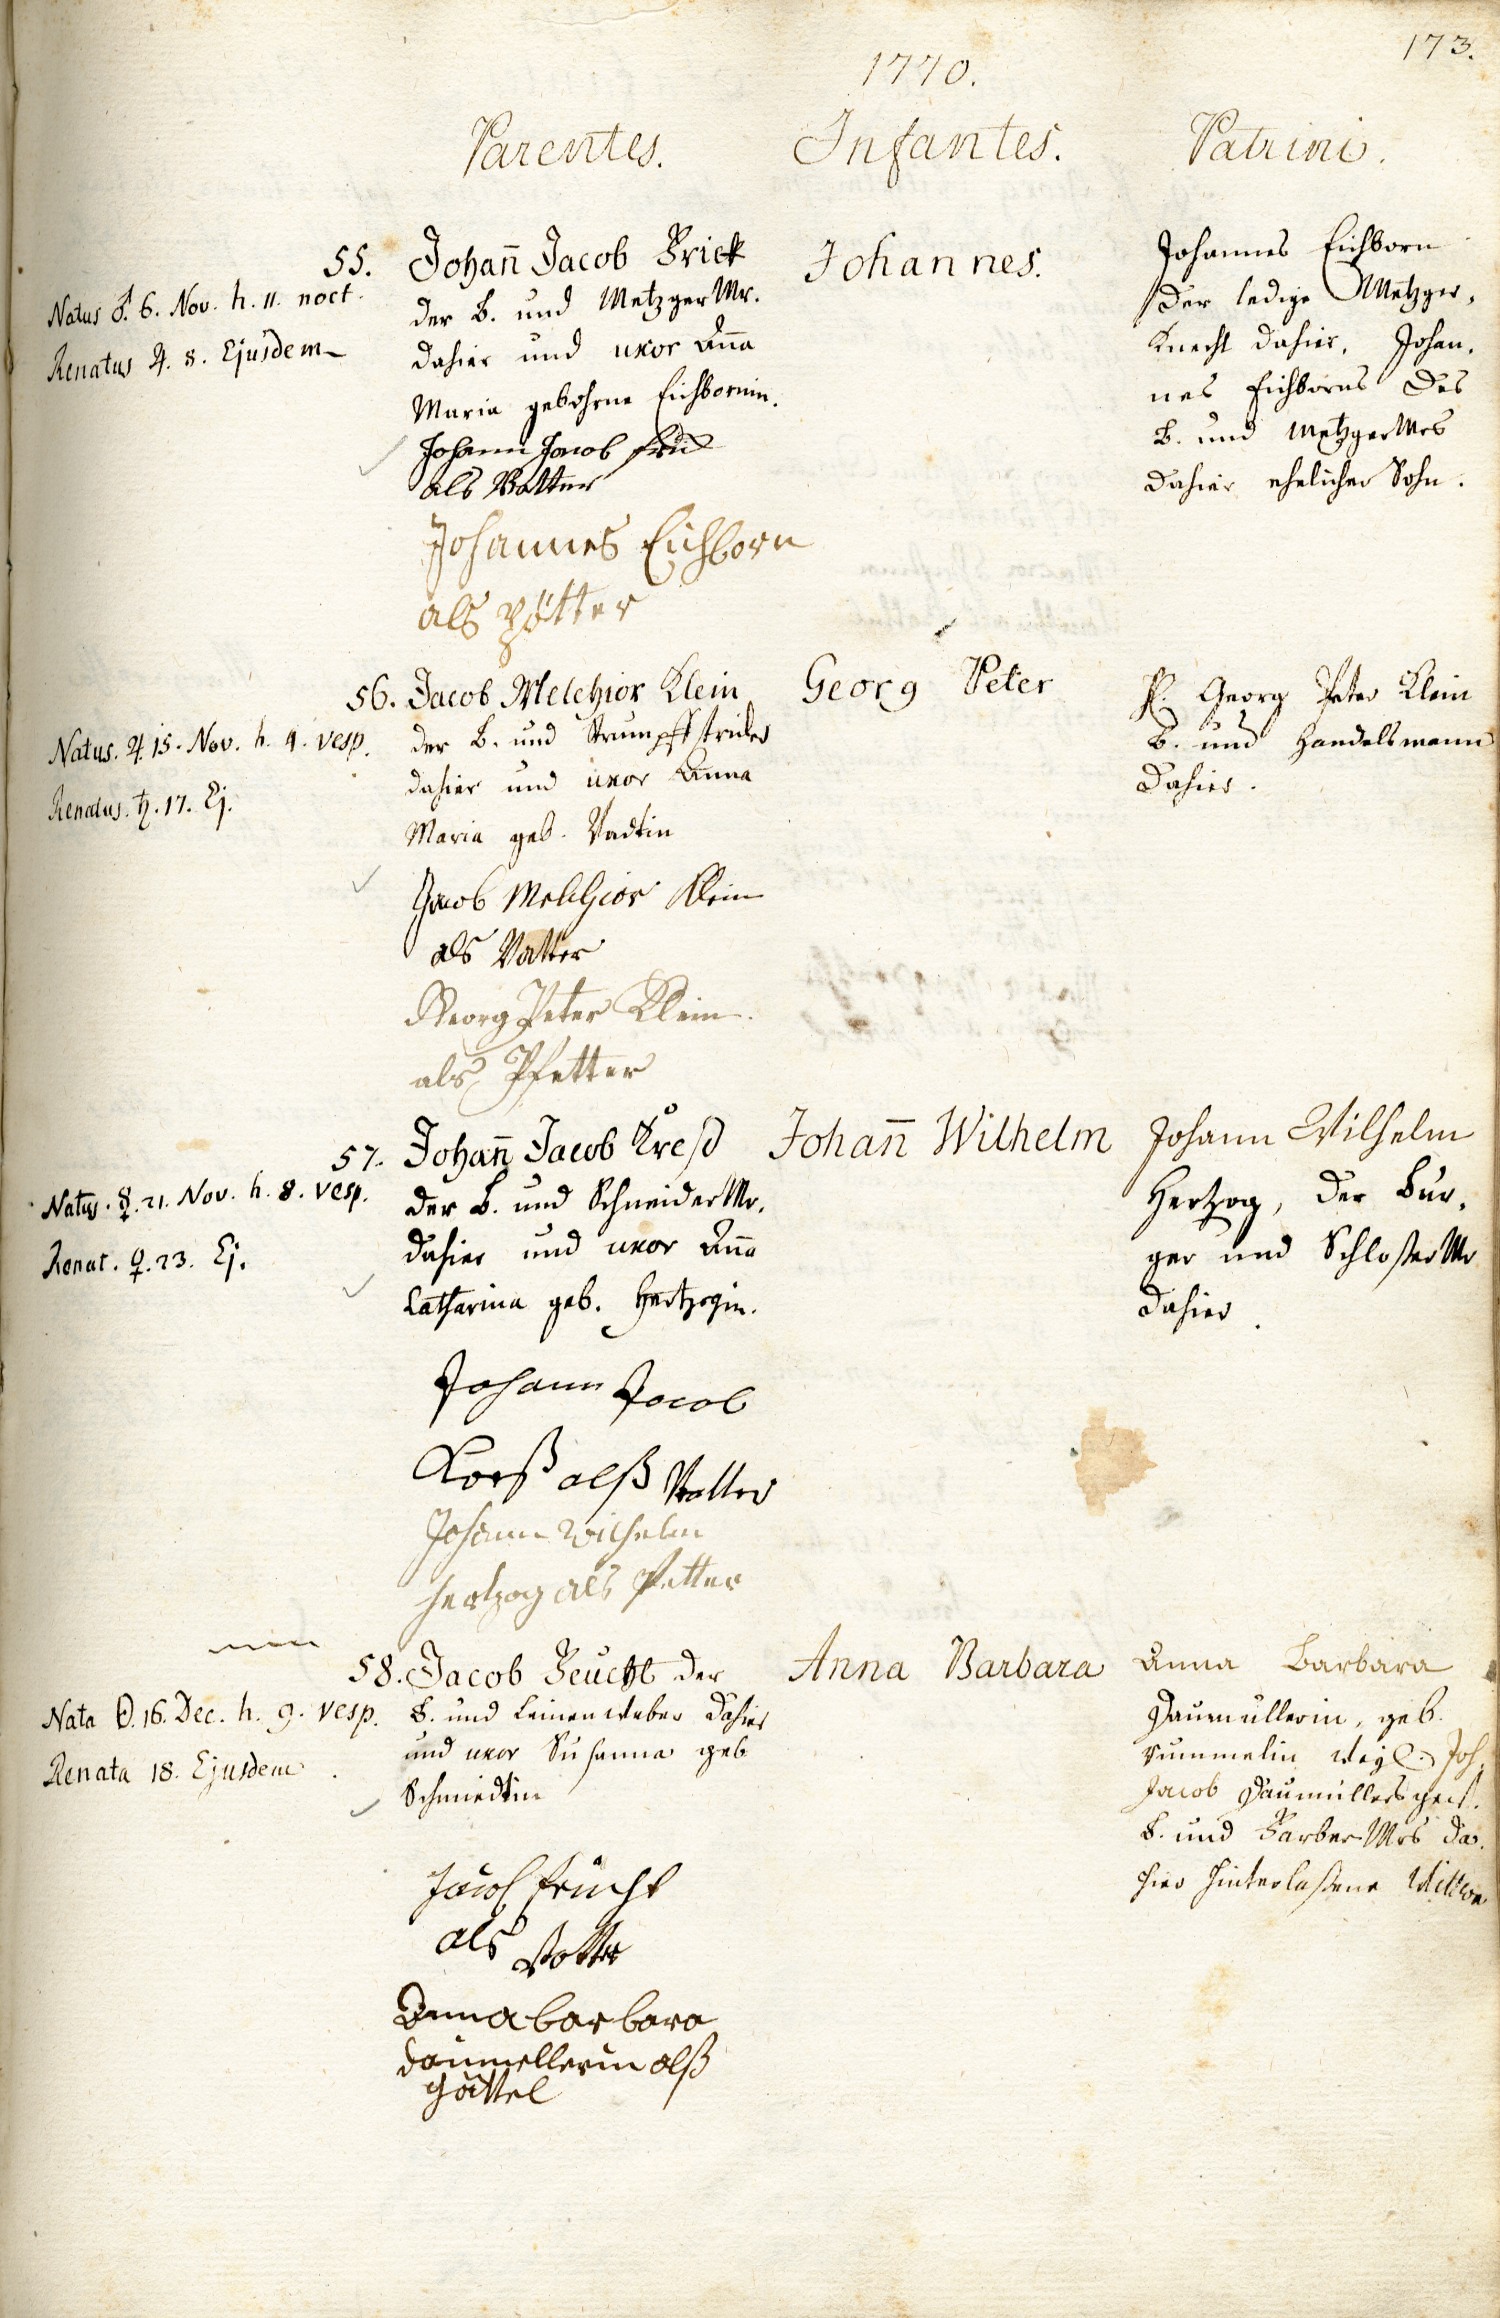 173.
1770.
Parentes. Infantes. Patrini.
55. Johan̄ Jacob Frick
der B. und Metzger Mr.
dahier und uxor An̄a
Maria gebohrne Eichbornin.
Natus ♂. 6. Nov. h. 11. noct.
Renatus ♃. 8. Ejusdem
Johann Jacob
als Vatter
Johannes Eichborn
als Pfötter
Johannes.
Johannes Eichborn
der ledige Metzger-
Knecht dahier, Johan-
nes Eichborns des
B. und Metzger Mrs
dahier ehelicher Sohn.
56. Jacob Melchior Klein
der B. und Strumpffstricker
dahier und uxor Anna
Maria geb. Vadtin
Natus. ♃. 15. Nov. h. 4. vesp.
Renatus. ♄. 17. Ej.
Jacob Melchior Klein
als Vatter
Georg Peter Klein.
als Pfetter
Georg Peter
H. Georg Peter Klein
B. und Handelsmann
dahier.
57. Johan̄ Jacob Kreß
der B. und Schneider Mr.
dahier und uxor An̄a
Catharina geb. Hertzogin.
Natus. ☿. 21. Nov. h. 8. vesp.
Renat. ♀. 23. Ej.
Johann Jacob
Kreß alß Vatter
Johann Wilhelm
Hertzog als Petter
Johan̄ Wilhelm
Johann Wilhelm
Hertzog, der Bur-
ger und Schloßer Mr
dahier.
58. Jacob Feucht der
B. und Leinenweber dahier
und uxor Susanna geb.
Schmidtin
Nata ☉. 16. Dec. h. 9. vesp.
Renata 18. Ejusdem
Jacob Feucht
als Vatter
Anna barbara
Daumellerin alß
göttel
Anna Barbara
Anna Barbara
Daumüllerin, geb.
Rummelin weyl. Joh.
Jacob Daumüllers gew.
B. und Färber Mrs da-
hier hinterlaßene Wittwe